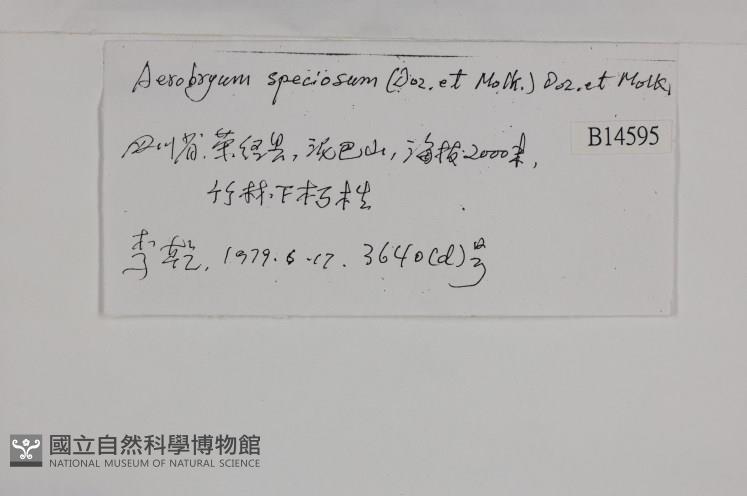 Aerobryum speciosum (Doz. et Molk.) Doz. et Molk.
四川省, 荥经县, 泥巴山, 海拔2000米,
B14595
竹林下朽桩
李乾, 1979.6.17. 3640(d)号
國立自然科學博物館
NATIONAL MUSEUM OF NATURAL SCIENCE